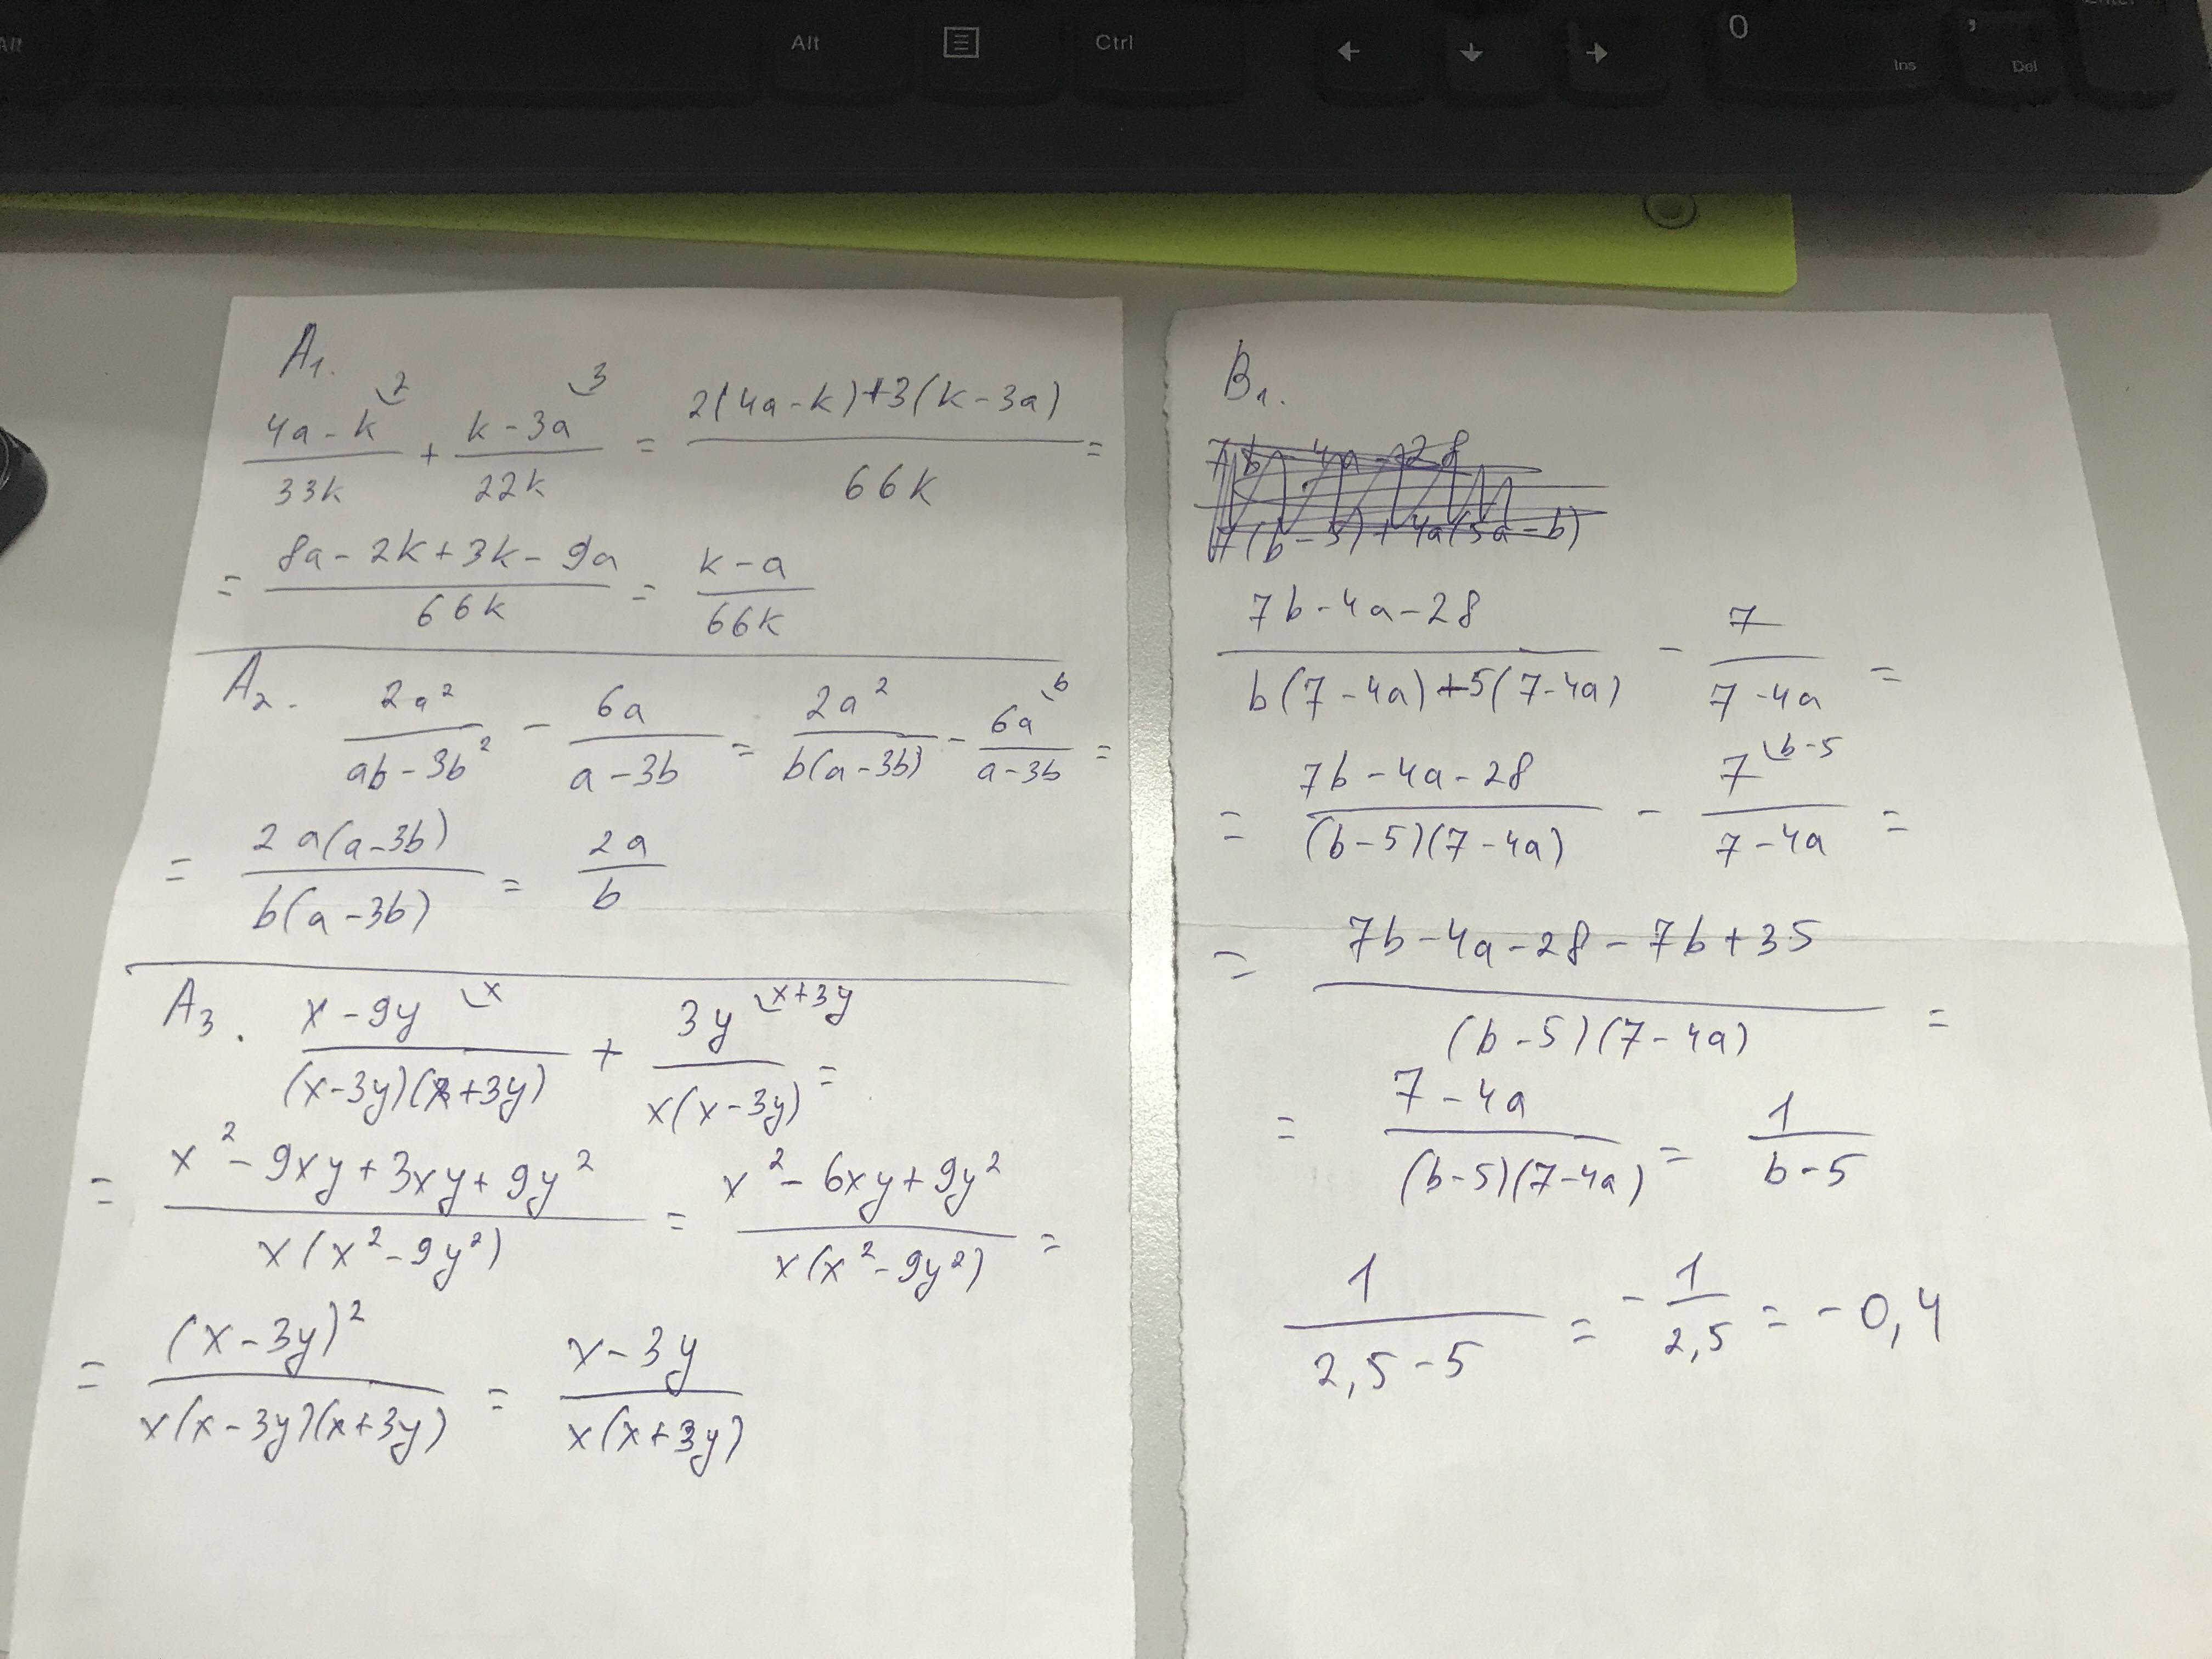 Alt Alt Ctrl ← ↓ → 0 Ins , Del
A1.
(4a - k)^{\2} / 33k + (k - 3a)^{\3} / 22k = (2(4a - k) + 3(k - 3a)) / 66k =
= (8a - 2k + 3k - 9a) / 66k = (k - a) / 66k
A2. 2a² / (ab - 3b²) - 6a / (a - 3b) = 2a² / (b(a - 3b)) - 6a^{\b} / (a - 3b) =
= 2a(a - 3b) / (b(a - 3b)) = 2a / b
A3. (x - 9y)^{\x} / ((x - 3y)(x + 3y)) + 3y^{\x+3y} / (x(x - 3y)) =
= (x² - 9xy + 3xy + 9y²) / (x(x² - 9y²)) = (x² - 6xy + 9y²) / (x(x² - 9y²)) =
= (x - 3y)² / (x(x - 3y)(x + 3y)) = (x - 3y) / (x(x + 3y))
B1.
(7b - 4a - 28) / (b(7 - 4a) + 5(7 - 4a)) - 7 / (7 - 4a) =
= (7b - 4a - 28) / ((b - 5)(7 - 4a)) - 7^{\b-5} / (7 - 4a) =
= (7b - 4a - 28 - 7b + 35) / ((b - 5)(7 - 4a)) =
= (7 - 4a) / ((b - 5)(7 - 4a)) = 1 / (b - 5)
1 / (2,5 - 5) = - 1 / 2,5 = - 0,4